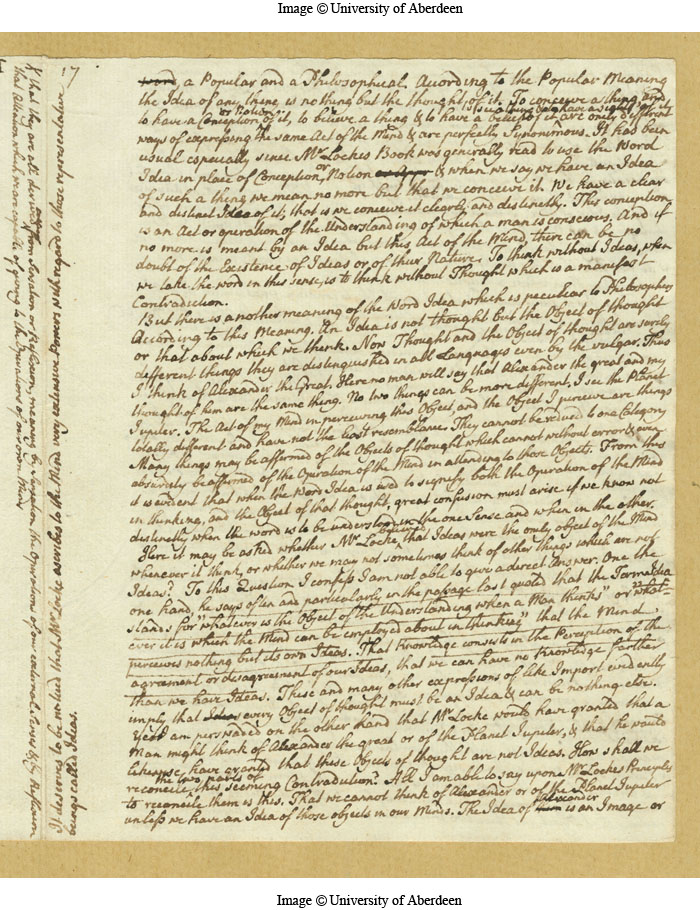 Image © University of Aberdeen
17
~~word~~ a Popular and a Philosophical. Acording to the Popular Meaning
the Idea of any thing is nothing but the thought of it. To conceive a thing, and
to have a Conception or Notion of it, is the same thing as to believe a thing & to have a belief of it are only different
ways of expressing the same Act of the Mind & are perfectly Synonimous. It had been
usual especially since Mr Lockes Book was generally read to use the Word
Idea in place of Conception, or Notion & when we say we have an Idea
of such a thing we mean no more but that we conceive it. We have a clear
and distinct Idea of it; that is we conceive it clearly and distinctly. This conception
is an Act or operation of the Understanding of which a man is conscious. And if
no more is meant by an Idea but this Act of the Mind, there can be no
doubt of the Existence of Ideas or of their Nature. To think without Ideas, when
we take the word in this sense, is to think without Thought which is a manifest
Contradiction.
But there is another meaning of the Word Idea which is peculiar to Philosophers
According to this Meaning. An Idea is not thought but the Object of thought
or that about which we think. Now Thought and the Object of thought are surely
different things they are distinguished in all Languages even by the vulgar. Thus
I think of Alexander the Great. Here no man will say that Alexander the great and my
thought of him are the same thing. No two things can be more different, I see the Planet
Jupiter. The Act of my Mind in perceiving this Object, and the Object I perceive are things
totally different and have not the least resemblance. They cannot be reduced to one Category
Many things may be affirmed of the Objects of thought which cannot without error & even
absurdity be affirmed of the Operation of the Mind in attending to those Objects. From this
it is evident that when the Word Idea is used to signify both the Operation of the Mind
in thinking, and the Object of that thought, great confusion must arise if we know not
distinctly when the word is to be understood in the one Sense and when in the other.
Here it may be asked whether Mr Locke believed that Ideas were the only object of the Mind
whenever it thinks, or whether we may not sometimes think of other things which are not
Ideas? To this Question I confess I am not able to give a direct Answer. One the
one hand, he says often and particularly in the passage last quoted that the Term Idea
stands for "whatever is the Object of the Understanding when a Man thinks" or "what-
ever it is which the Mind can be employed about in thinking" that the Mind
perceives nothing but its own Ideas. That Knowledge consists in the Perception of the
agreement or disagreement of our Ideas, that we can have no Knowledge farther
than we have Ideas. These and many other expressions of like Import evidently
imply that ~~Ideas~~ every Object of thought must be an Idea & can be nothing else.
Yet I am perswaded on the other hand that Mr Locke would have granted that a
Man might think of Alexander the great or of the Planet Jupiter, & that he would
likewise have granted that these Objects of thought are not Ideas. How shall we
reconcile the two parts of this seeming Contradiction? All I am able to say upon Mr Lockes Principles
to reconcile them is this. That we cannot think of Alexander or of the Planet Jupiter
unless we have an Idea of those objects in our Minds. The Idea of ~~them~~ Alexander is an Image or
It deserves to be noticed that Mr Locke ascribes to the Mind very extensive Powers with regard to those representative
beings called Ideas.
that they are all derived from Sensation or Reflexion, meaning by Sensation the Operations of our external Senses & by Reflexion
that Attention which we are capable of giving to the Operations of our own Minds
Image © University of Aberdeen